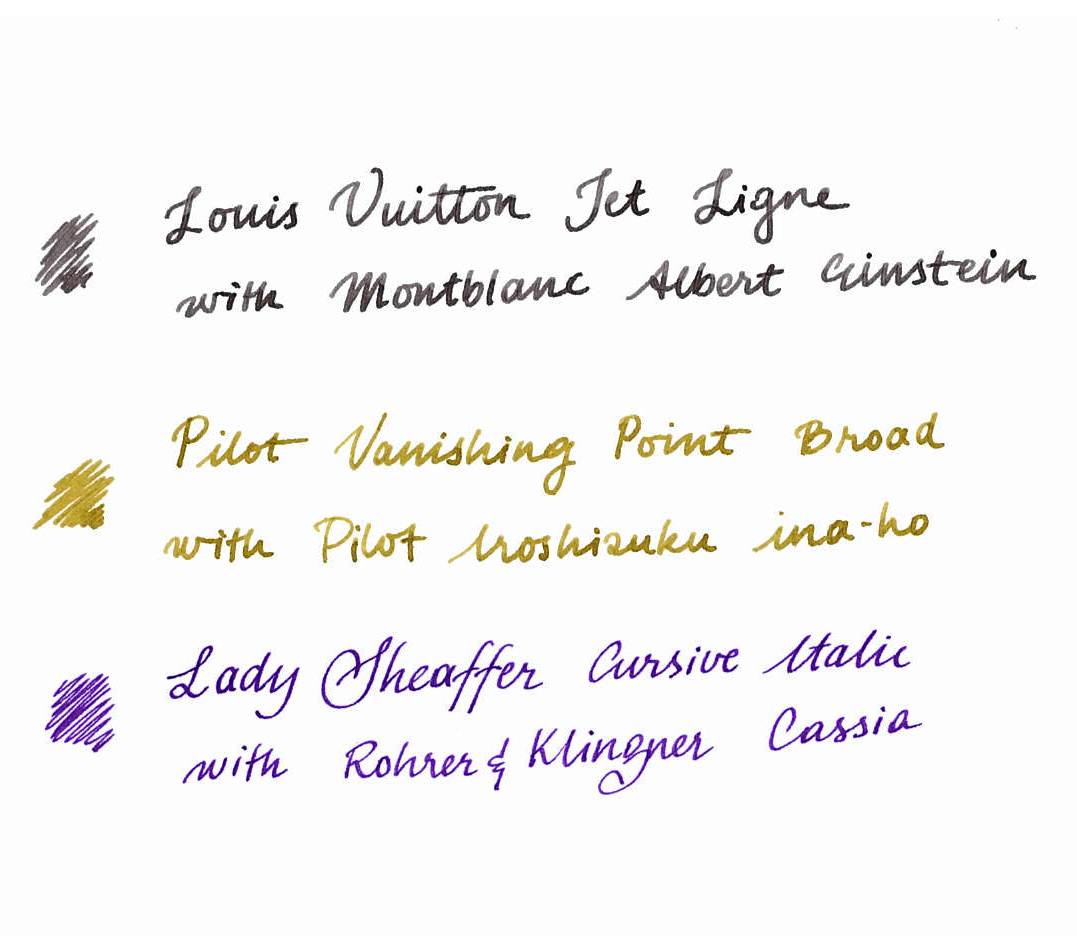 Louis Vuitton Jet Ligne
with Montblanc Albert Einstein
Pilot Vanishing Point Broad
with Pilot Iroshizuku ina-ho
Lady Sheaffer Cursive Italic
with Rohrer & Klingner Cassia